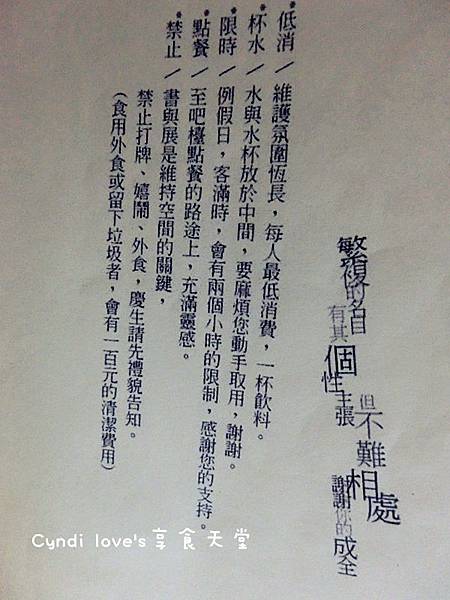 繁複的名目
有其
個性主張
但
不難
相處
謝謝您的成全
*低消/維護氛圍恆長，每人最低消費，一杯飲料。
*杯水/水與水杯放於中間，要麻煩您動手取用，謝謝。
*限時/例假日，客滿時，會有兩個小時的限制，感謝您的支持。
*點餐/至吧檯點餐的路途上，充滿靈感。
*禁止/書與展是維持空間的關鍵，
禁止打牌、嬉鬧、外食，慶生請先禮貌告知。
(食用外食或留下垃圾者，會有一百元的清潔費用)
Cyndi love's享食天堂